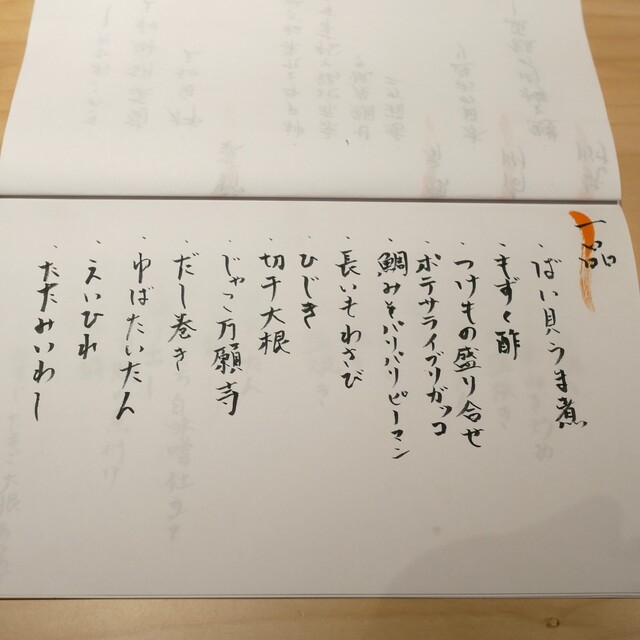 一品
・ばい貝うま煮
・もずく酢
・つけもの盛り合せ
・ポテサライブリガッコ
・鯛みそパリパリピーマン
・長いもわさび
・ひじき
・切干大根
・じゃこ万願寺
・だし巻き
・ゆばたいたん
・えいひれ
・たたみいわし